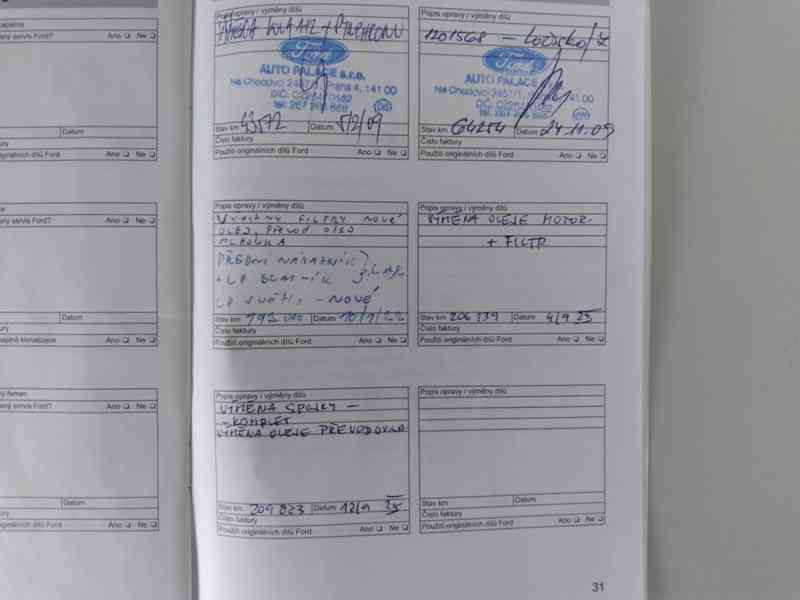 zapalme
aný servis Ford? Ano ❏ Ne ❏
Datum
ry
riginálních dílů Ford Ano ❏ Ne ❏
aný servis Ford? Ano ❏ Ne ❏
Datum
ry
Ano ❏ Ne ❏
aný servis Ford? Ano ❏ Ne ❏
Datum
ry
riginálních dílů Ford Ano ❏ Ne ❏
Popis opravy / výměny dílů
Ford
AUTO PALACE s.r.o.
Na Chodovci 2457/1, Praha 4, 141 00
Stav km 43572 Datum 5/2/09
Číslo faktury
Použití originálních dílů Ford Ano ❏ Ne ❏
Popis opravy / výměny dílů
1201568 - Ložisko/Z
Ford
AUTO PALACE s.r.o.
Na Chodovci 2457/1, 141 00
Stav km 64254 Datum 24.11.09
Číslo faktury
Použití originálních dílů Ford Ano ❏ Ne ❏
Popis opravy / výměny dílů
VŠECHNY FILTRY NOVÉ
OLEJ, PŘEVOD OLEJ
PŘEDNÍ NÁRAZNÍK
+ LP BLATNÍK
LP SVĚTL. - NOVÉ
Stav km 193 000 Datum 10/1/22
Číslo faktury
Použití originálních dílů Ford Ano ❏ Ne ❏
Popis opravy / výměny dílů
VÝMĚNA OLEJE MOTOR.
+ FILTR
Stav km 206 139 Datum 4/9 25
Číslo faktury
Použití originálních dílů Ford Ano ❏ Ne ❏
Popis opravy / výměny dílů
VÝMĚNA SPOJKY -
- KOMPLET
VÝMĚNA OLEJE PŘEVODOVKA
Stav km 209 823 Datum 12/9 25
Číslo faktury
Použití originálních dílů Ford Ano ❏ Ne ❏
Popis opravy / výměny dílů
Stav km Datum
Číslo faktury
Použití originálních dílů Ford Ano ❏ Ne ❏
31